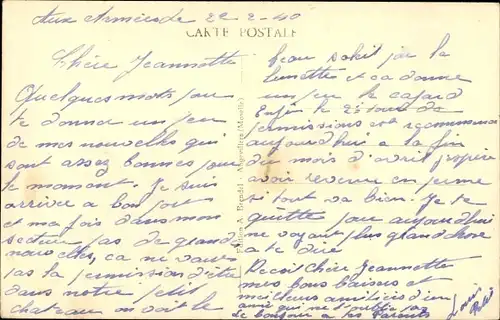 Aux Armées le 22-2-40
CARTE POSTALE
Chère Jeannette
Quelques mots pour
te donner un peu
de mes nouvelles qui
sont assez bonnes pour
le moment. Je suis
arrivé a bon port
et ma fois dans mon
secteur pas de grande
nouvelles, ca ne vaut
pas la permission d'être
dans notre petit
chateau on voit le
beau soleil par la
lunette et ca donne
un peu le cafard
Enfin le 2i tour de
permissions est recommencé
aujourd'hui a la fin
du mois d'avril
revenir en perme
si tout va bien. Je te
quitte pour aujourd'hui
ne voyant plus grand chose
a te dire
Recoit Chère Jeannette
mes bons baisers et
meilleurs amitiés d'un
ami qui ne t'oublie pas
le bonjour a tes Parents
Louis
Edition A. - (Moselle)